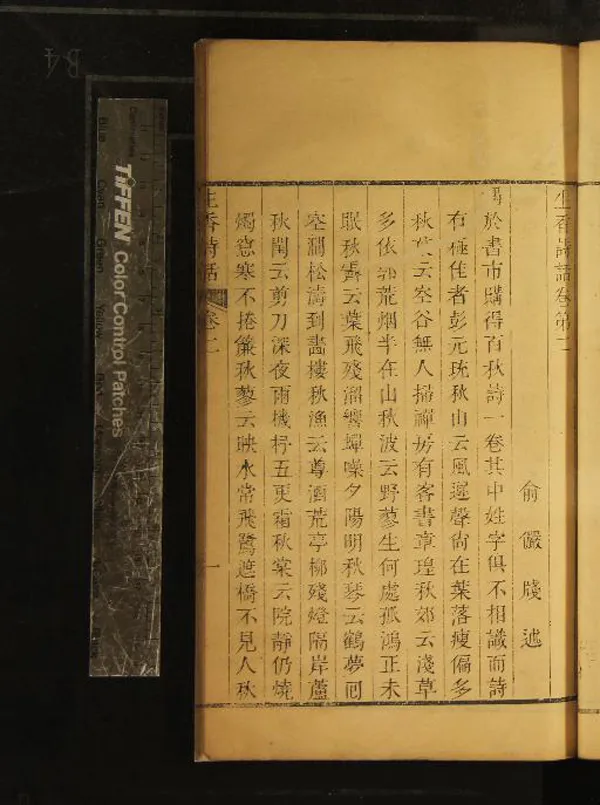 生香詩話卷第二
俞儼牋述
偶於書市購得百秋詩一卷其中姓字俱不相識而詩
有極佳者彭元珫秋山云風遲聲尚在葉落瘦偏多
秋云空谷無人掃禪房有客書章瑝秋郊云淺草
多依郭荒烟半在山秋波云野蓼生何處孤鴻正未
眠秋霽云葉飛殘溜響蟬噪夕陽明秋琴云鶴夢回
空澗松濤到畫樓秋漁云尊酒荒亭柳殘燈隔岸蘆
秋閨云剪刀深夜雨機杼五更霜秋棠云院靜仍燒
燭意寒不捲簾秋蓼云映水常飛鷺遮橋不見人秋
生香詩話 卷二 一
TIFFEN Color Control Patches
Blue
Cyan
Green
Yellow
Red
B4